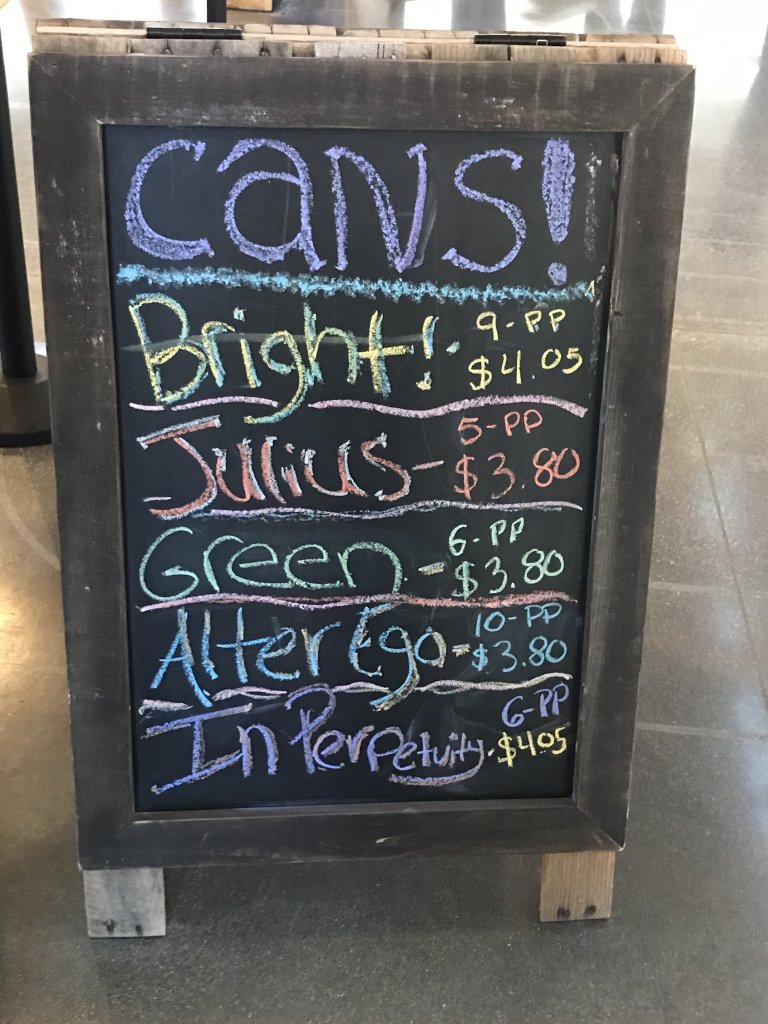 Cans!
Bright! - 9-PP
$4.05
Julius - 5-PP
$3.80
Green - 6-PP
$3.80
Alter Ego - 10-PP
$3.80
In Perpetuity - 6-PP
$4.05